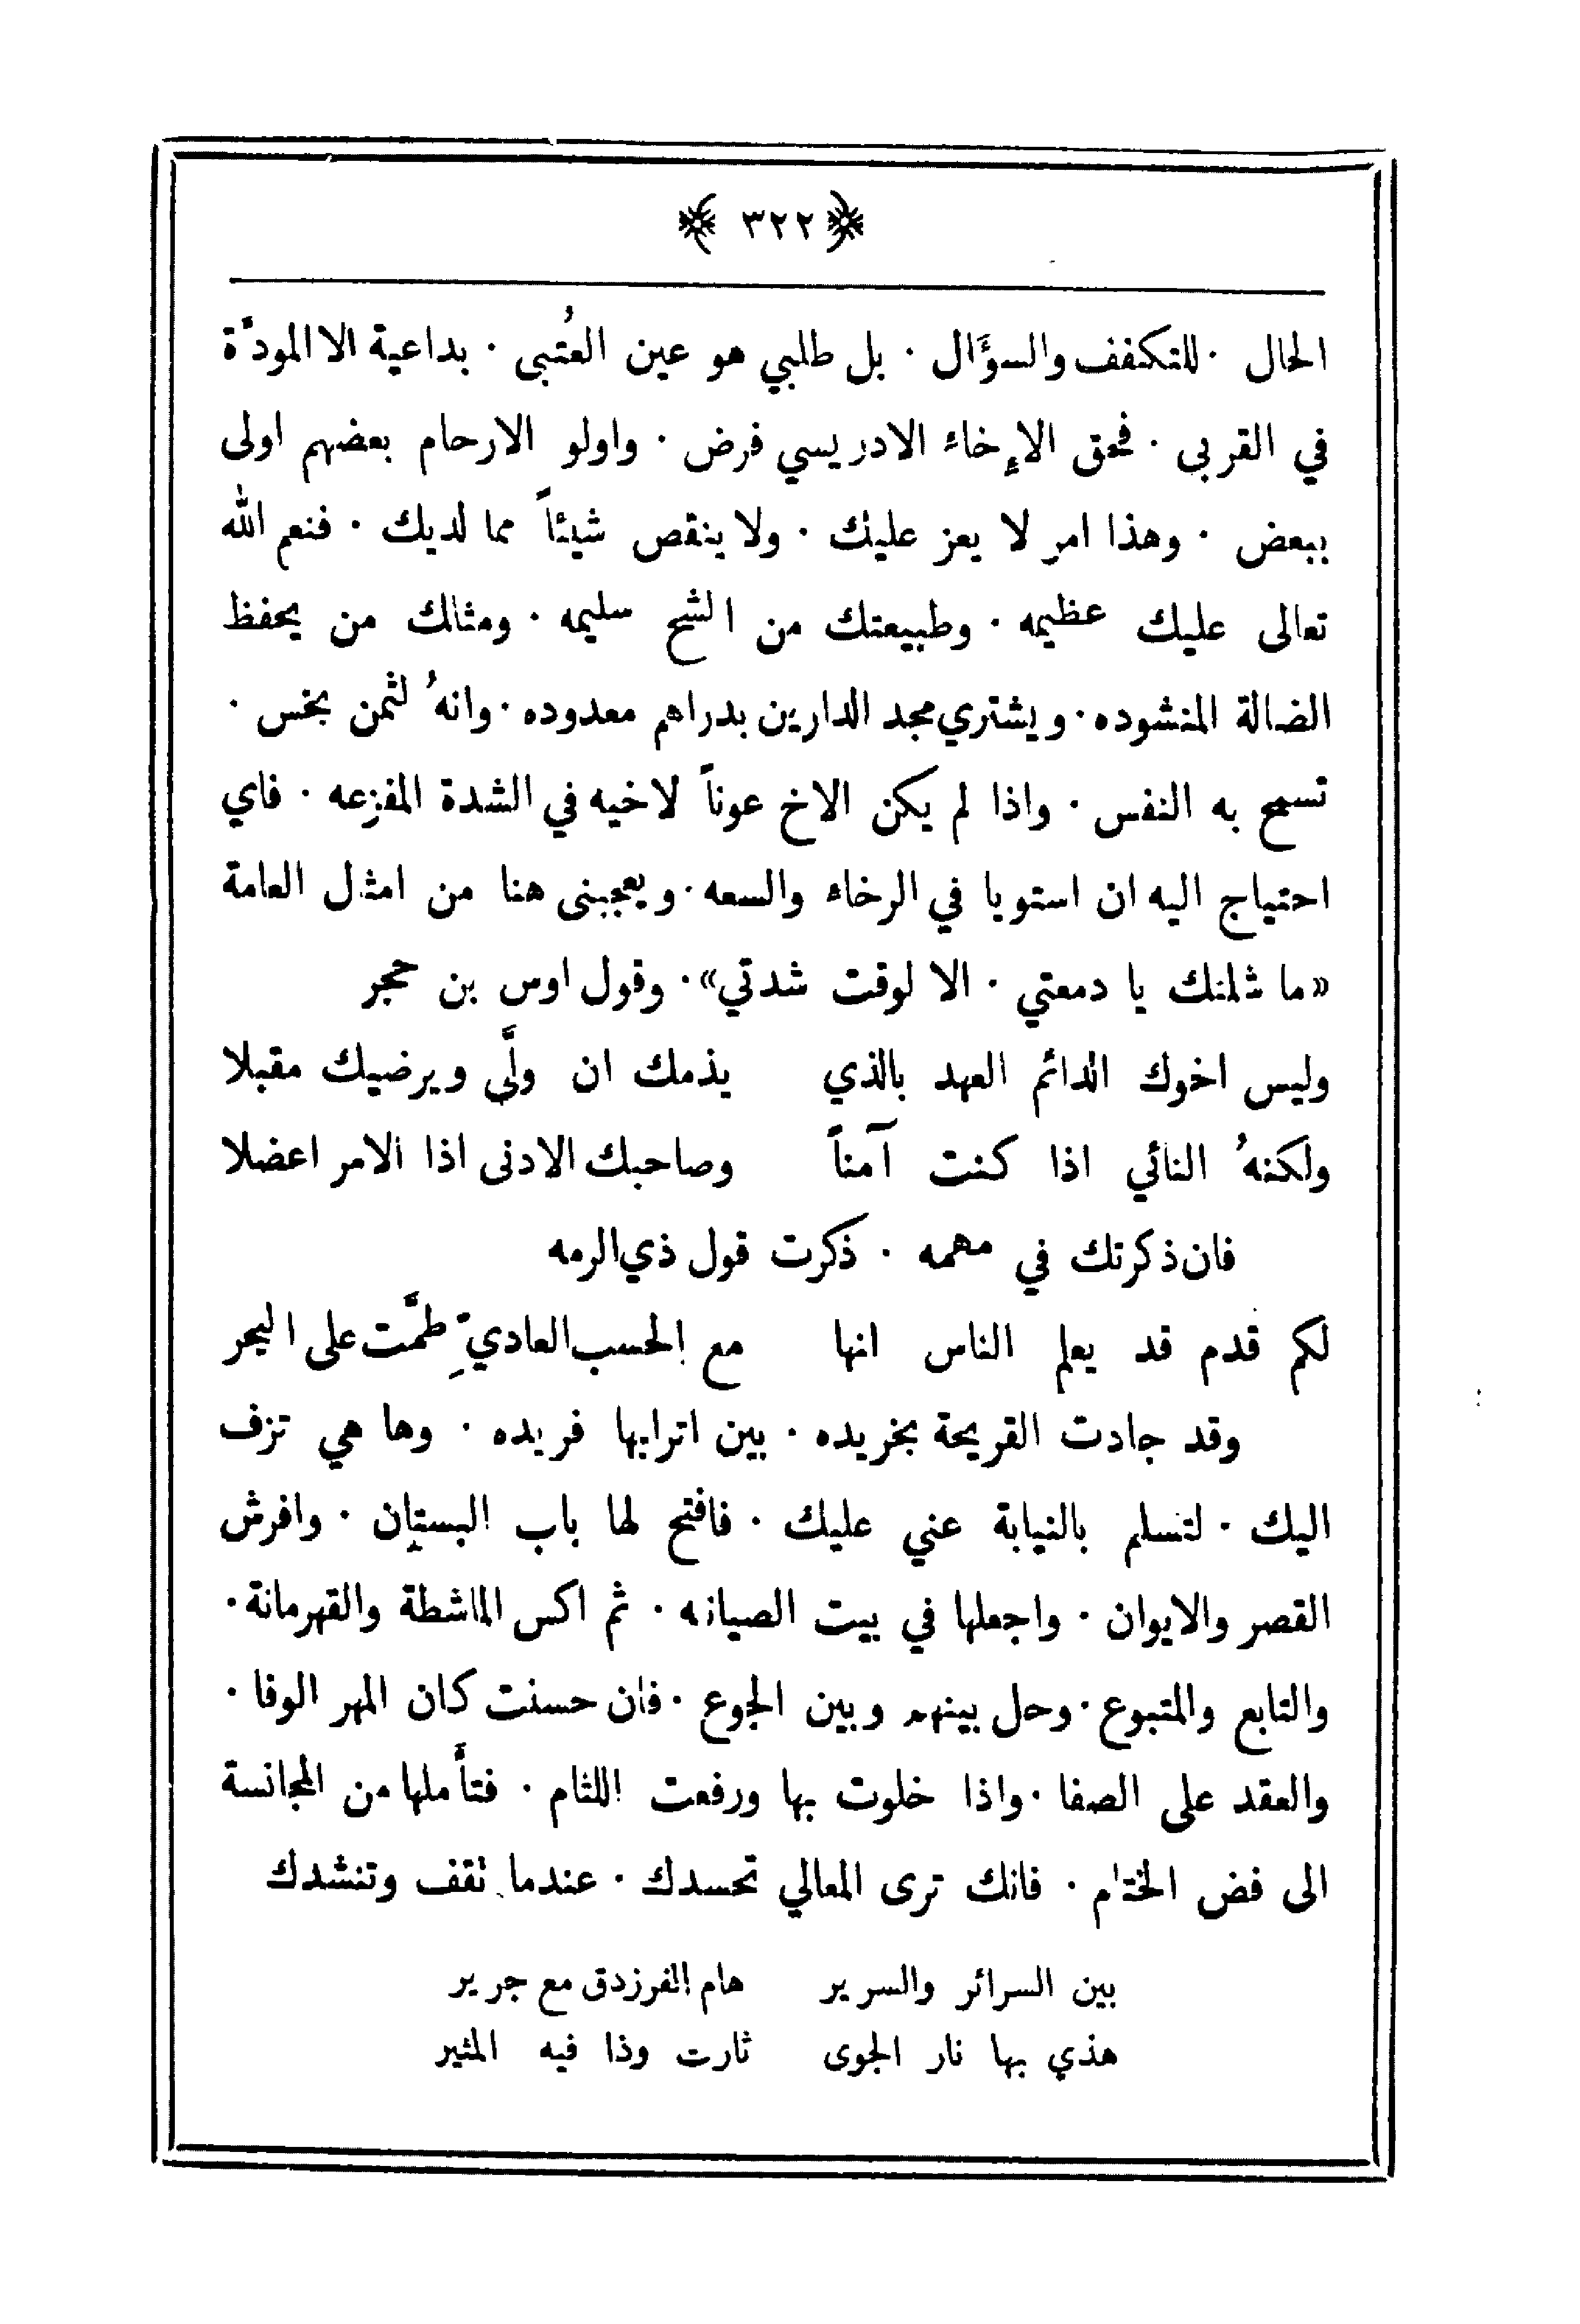 ﴿ ٣٢٢ ﴾
الحال · للتكفف والسؤال · بل طلبي هو عين العُتبى · بداعية الا المودَّة
في القربى · فحق الإخاء الادريسي فرض · واولو الارحام بعضهم اولى
ببعض · وهذا امر لا يعز عليك · ولا ينقص شيئاً مما لديك · فنعم الله
تعالى عليك عظيمه · وطبيعتك من الشح سليمه · ومثالك من يحفظ
الضالة المنشوده · ويشتري مجد الدارين بدراهم معدوده · وانهُ لثمن بخس ·
تسمح به النفس · واذا لم يكن الاخ عوناً لاخيه في الشدة المفزعه · فاي
احتياج اليه ان استويا في الرخاء والسعه · ويعجبنى هنا من امثال العامة
«ما شلمنك يا دمعتي · الا لوقت شدتي» · وقول اوس بن حجر
وليس اخوك الدائم العهد بالذي يذمك ان ولَّى ويرضيك مقبلا
ولكنهُ النائي اذا كنت آمناً وصاحبك الادنى اذا الامر اعضلا
فان ذكرتك في مهمه · ذكرت قول ذي الرمه
لكم قدم قد يعلم الناس انها مع الحسب العاديِّ طمَّت على البحر
وقد جادت القريحة بخريده · بين اترابها فريده · وها هي تزف
اليك · لتسلم بالنيابة عني عليك · فافتح لها باب البستان · وافرش
القصر والايوان · واجعلها في بيت الصيانه · ثم اكس الماشطة والقهرمانة ·
والتابع والمتبوع · وحل بينهم وبين الجوع · فان حسنت كان المهر الوفا ·
والعقد على الصفا · واذا خلوت بها ورفعت اللثام · فتأملها من المجانسة
الى فض الختام · فانك ترى المعالي تحسدك · عندما تقف وتنشدك
بين السرائر والسرير هام الفرزدق مع جرير
هذي بها نار الجوى ثارت وذا فيه المثير